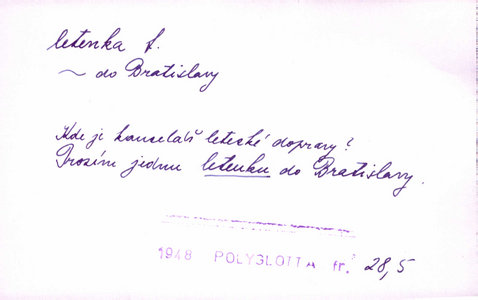 letenka f.
~ do Bratislavy
Kde je kancelář letecké dopravy?
Prosím jednu letenku do Bratislavy.
1948 POLYGLOTTA fr. 28,5